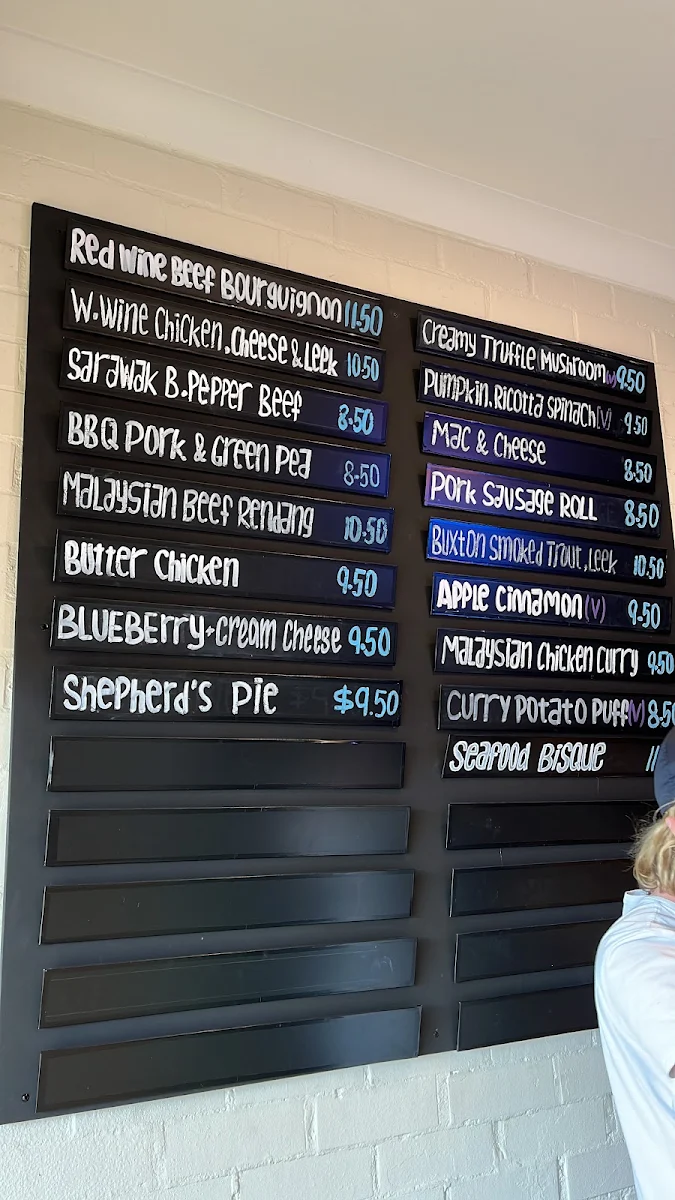 Red Wine Beef Bourguignon 11.50
W.Wine Chicken, Cheese & Leek 10.50
Sarawak B.Pepper Beef 8.50
BBQ Pork & Green Pea 8.50
Malaysian Beef Rendang 10.50
Butter Chicken 9.50
BLUEBErry-Cream Cheese 9.50
Shepherd's Pie $9.50
Creamy Truffle Mushroom (V) 9.50
Pumpkin. Ricotta Spinach (V) 9.50
Mac & Cheese 8.50
Pork Sausage Roll 8.50
Buxton Smoked Trout, Leek 10.50
Apple Cinnamon (V) 9.50
Malaysian Chicken Curry 9.50
Curry Potato Puff (V) 8.50
Seafood Bisque